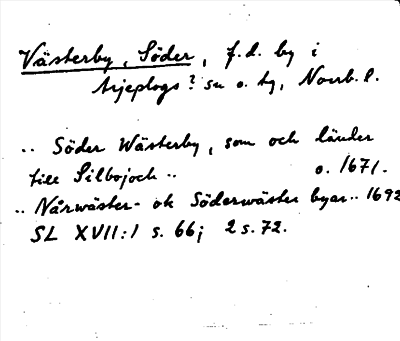 Västerby, Söder, f.d. by i
Arjeplogs? sn o. tg, Norrb. l.
.. Söder Wästerby, som och länder
till Silbojoch ..
o. 1671.
.. Nårwäster- ok Söderwäster byar .. 1692
SL XVII:1 s. 66; 2 s. 72.